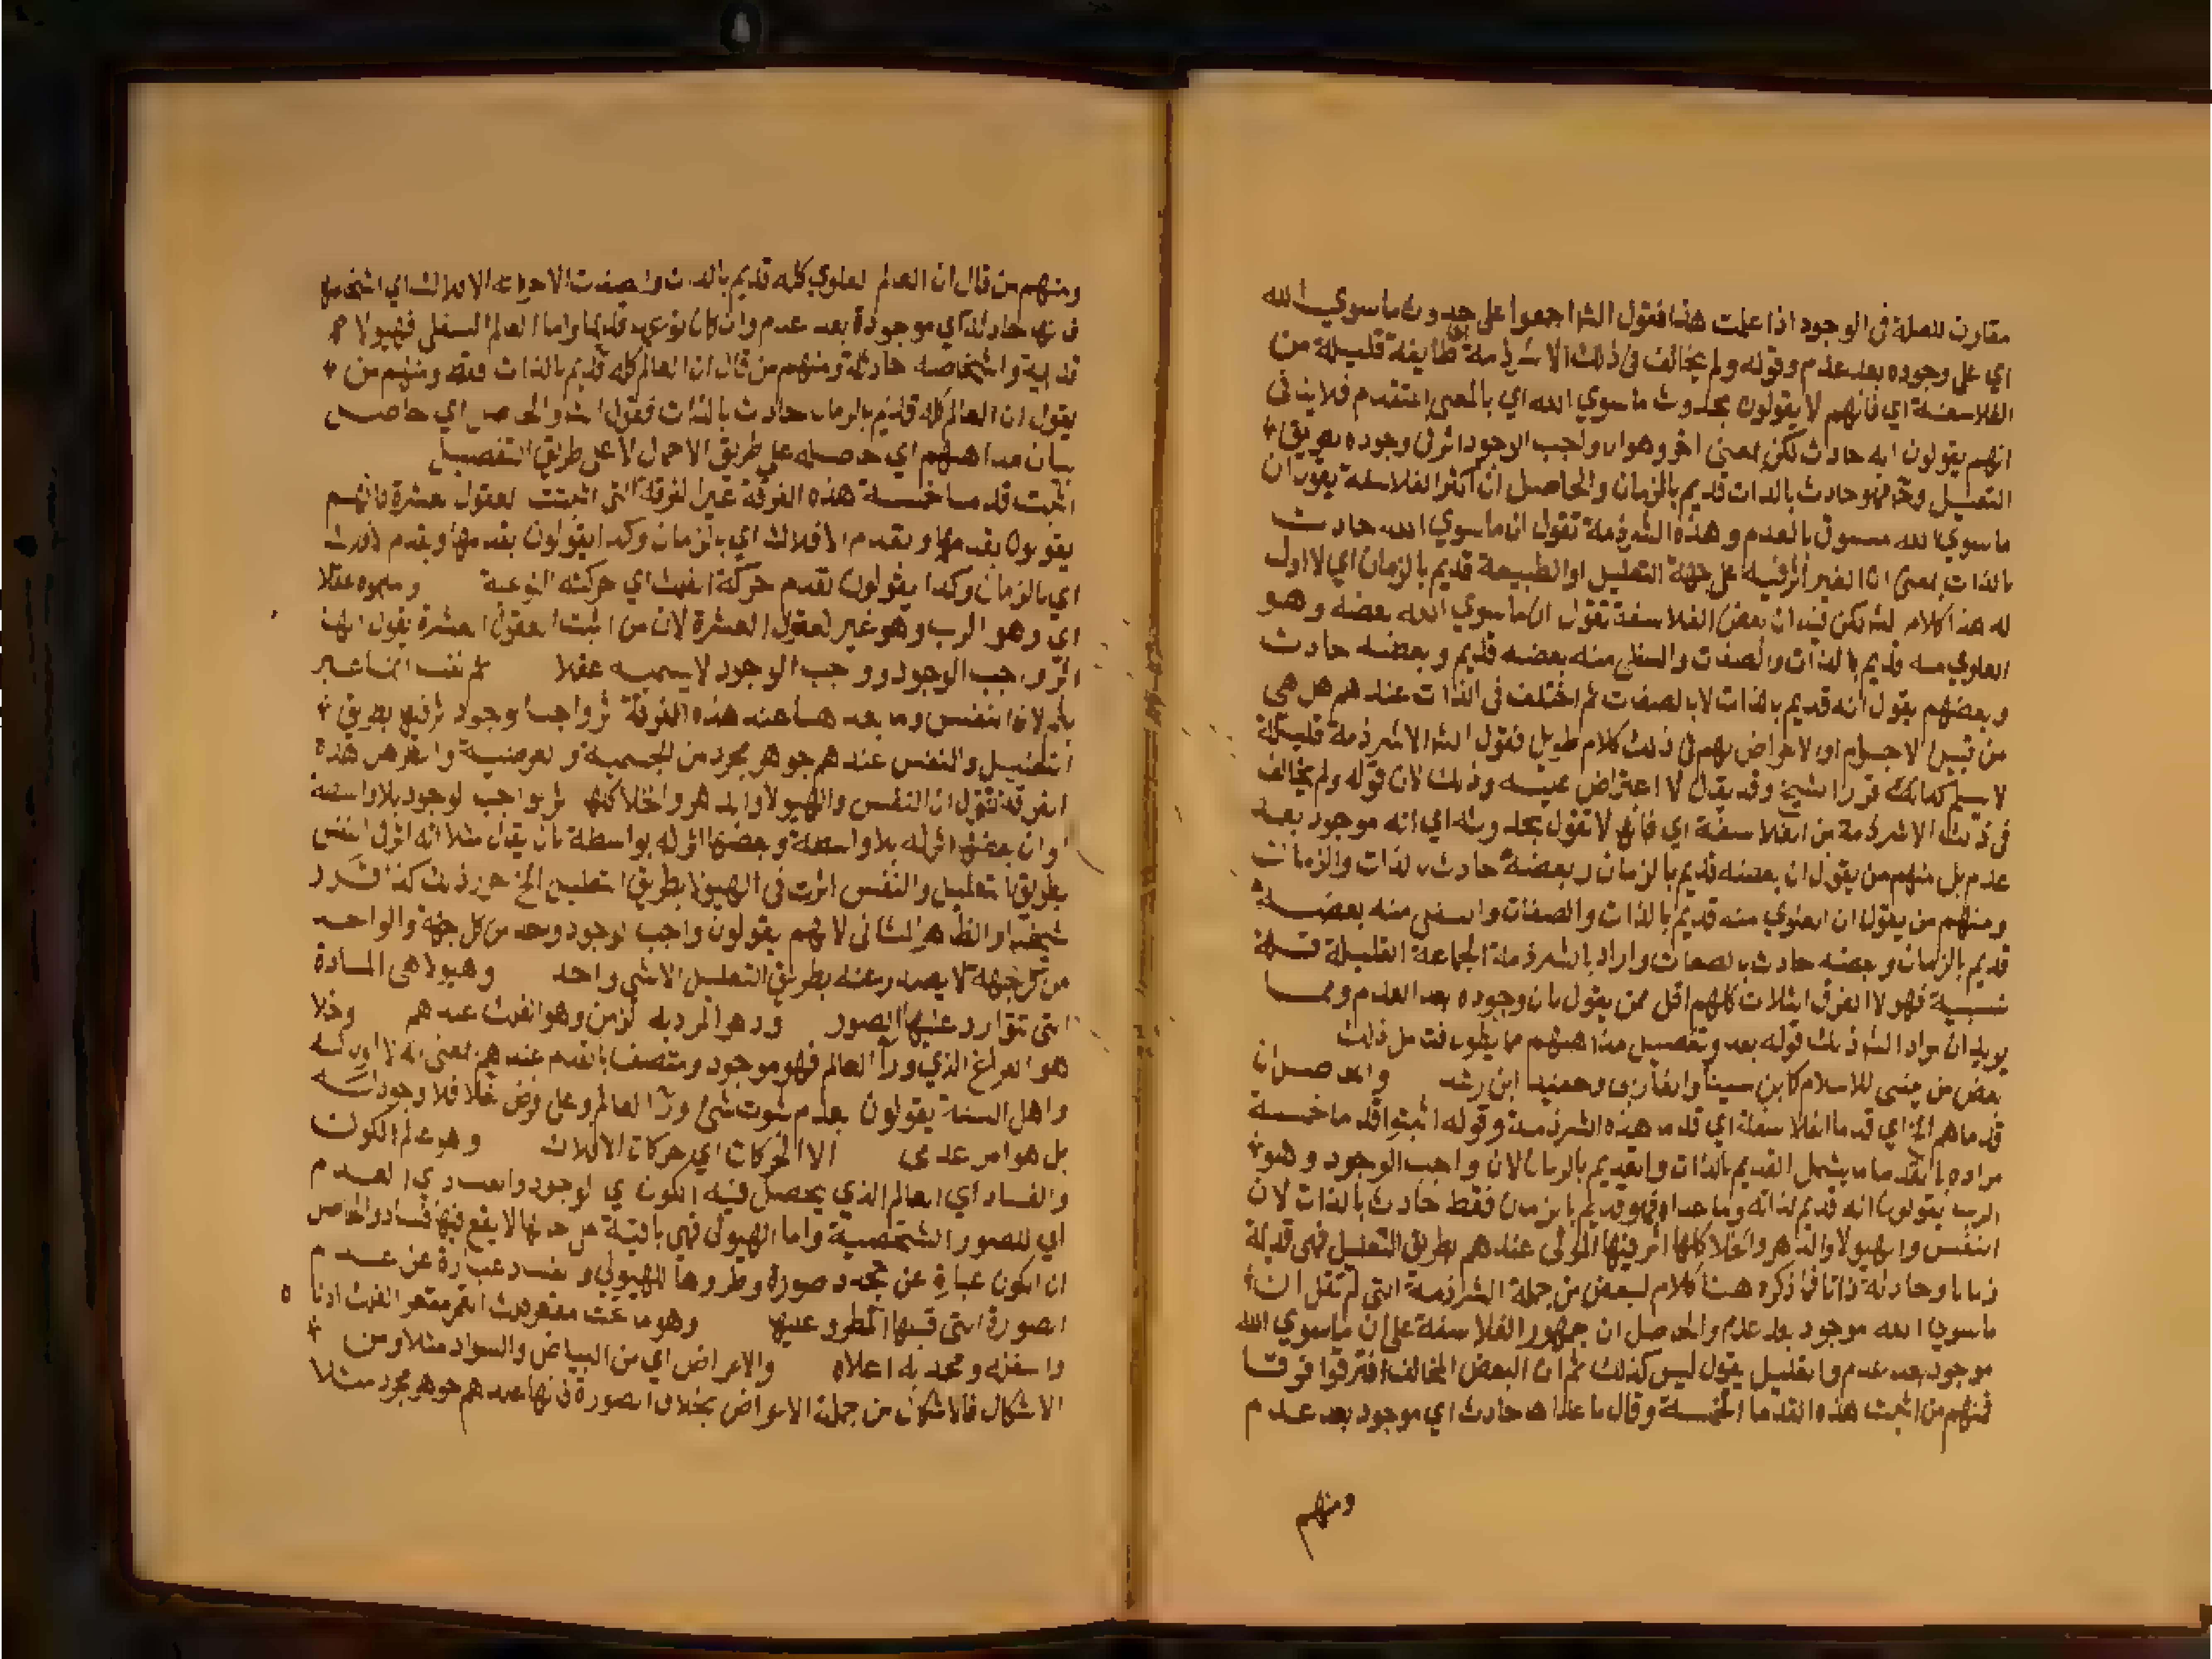 مقارن للعلة فى الوجود اذا علمت هذا فقول الشا اجمعوا على حدوث ماسوي الله
اي على وجوده بعد عدم وقوله ولم يخالف فى ذلك الا شرذمة اي طايفة قليلة من
الفلاسفة اي فانهم لا يقولون بحدوث ما سوي الله اي بالمعنى المتقدم فلا ينافى
انهم يقولون انه حادث لكن بمعنى اخر وهو ان واجب الوجود اثر فى وجوده بطريق
التعليل وح فهو حادث بالذات قديم بالزمان والحاصل ان اكثر الفلاسفة يقول ان
ما سوي الله مسبوق بالعدم وهذه الشرذمة تقول ان ما سوي الله حادث
بالذات بمعنى ان الغير اثر فيه على جهة التعليل او الطبيعة قديم بالزمان اي لا اول
له هذا كلام الشا لكن فيه ان بعض الفلاسفة تقول ان ما سوي الله بعضه وهو
العلوي منه قديم بالذات والصفات والسفلى منه بعضه قديم وبعضه حادث
وبعضهم يقول انه قديم بالذات لا بالصفات ثم اختلف فى الذات عندهم هل هى
من قبيل الاجرام او الاعراض لهم فى ذلك كلام طويل فقول الشا الا شرذمة قليلة
لا يسلم كما قرر الشيخ وقد يقال لا اعتراض عليه وذلك لان قوله ولم يخالف
فى ذلك الا شرذمة من الفلاسفة اي فانها لا تقول بحدوثه اي انه موجود بعد
عدم بل منهم من يقول ان بعضه قديم بالزمان وبعضه حادث بالذات والزمان
ومنهم من يقول ان العلوي منه قديم بالذات والصفات والسفلى منه بعضه
قديم بالزمان وبعضه حادث بالصفات واراد بالشرذمة الجماعة القليلة قلة
نسبية فهولا الفرق الثلاث كلهم اقل ممن يقول بان وجوده بعد العدم ومما
يويد ان مراد الشا ذلك قوله بعد وتفصيل مذاهبهم مما يطول فتامل ذلك
بعض من ينتمى للاسلام كابن سينا والفارابى وحفيد ابن رشد والحاصل ان
قدماهم الخ اي قدما الفلاسفة اي قدما هذه الشرذمة وقوله اثبتوا قدما خمسة
مراده بالقدما ما يشمل القديم بالذات والقديم بالزمان لان واجب الوجود وهو
الرب يقولون انه قديم لذاته وما عداه فهو قديم بالزمان فقط حادث بالذات لان
النفس والهيولا والدهر والخلا كلها اثر فيها المولى عندهم بطريق التعليل فهى قديمة
زمانا وحادثة ذاتا فما ذكره هنا كلام لبعض من جملة الشرذمة التى لم تقل ان
ماسوي الله موجود بعد عدم والحاصل ان جمهور الفلاسفة على ان ماسوي الله
موجود بعد عدم والقليل يقول ليس كذلك ثم ان البعض المخالف افترقوا فرقا
فمنهم من اثبت هذه القدما الخمسة وقال ما عداها حادث اي موجود بعد عدم
ومنهم
ومنهم من قال ان العالم العلوي كله قديم بالذات والصفات الا حركات الافلاك اي اشخاصها
فانها حادثة اي موجودة بعد عدم وان كان نوعها قديما واما العالم السفلى فهيولاه
قديمة واشخاصه حادثة ومنهم من قال ان العالم كله قديم بالذات فقط ومنهم من
يقول ان العالم كله قديم بالزمان حادث بالذات فقول الشا والحاصل اي حاصل
بيان مذاهبهم اي حاصله على طريق الاجمال لا على طريق التفصيل
اثبت قدما خمسة هذه الفرقة غير الفرقة التى اثبتت العقول العشرة فانهم
يقولون بقدمها وبقدم الافلاك اي بالزمان وكذا يقولون بقدمها وبقدم
اي بالزمان وكذا يقولون بقدم حركة الفلك اي حركته النوعية وسموه عقلا
اي وهو الرب وهو غير العقول العشرة لان من اثبت العقول العشرة يقول انها
اثر واجب الوجود وواجب الوجود لا يسميه عقلا ثم نفسا
بثم لان النفس وما بعدها عند هذه الفرقة اثر واجب الوجود اثر فيها بطريق
التعليل والنفس عندهم جوهر مجرد من الجسمية والعرضية وانظر هل هذه
الفرقة تقول ان النفس والهيولا والدهر والخلا كلها اثر لواجب الوجود بلا واسطة
او ان بعضها اثر له بلا واسطة وبعضها اثر له بواسطة بان يقال مثلا انه اثر فى النفس
بطريق التعليل والنفس اثرت فى الهيولا بطريق التعليل الخ حرر ذلك كذا قرر
شيخنا والظاهر الثانى لانهم يقولون واجب الوجود واحد من كل جهة والواحد
من كل جهة لا يصدر عنه بطريق التعليل الا شى واحد وهيولا هى المادة
التى تتوارد عليها الصور ودهر المراد به الزمن وهو الفلك عندهم وخلا
هو الفراغ الذي ورا العالم فهو موجود ومتصف بالقدم عندهم بمعنى انه لا اول له
واهل السنة يقولون بعدم ثبوت شى ورا العالم وعلى فرض خلا فلا وجود له
بل هو امر عدمى الا الحركات اي حركات الافلاك وهو عالم الكون
والفساد اي العالم الذي يحصل فيه الكون اي الوجود والفساد اي العدم
اي للصور الشخصية واما الهيولى فهى باقية على حالها لا يقع فيها فساد والحاصل
ان الكون عبارة عن تجدد صورة وطروها للهيولى والفساد عبارة عن عدم
الصورة التى قبلها المطرو عليها وهو ما تحت مقعر فلك القمر مقعر الفلك ادناه
واسفله ومحدبه اعلاه والاعراض اي من البياض والسواد مثلا ومن
الاشكال فالاشكال من جملة الاعراض بخلاف الصورة فانها عندهم جوهر مجرد مثلا